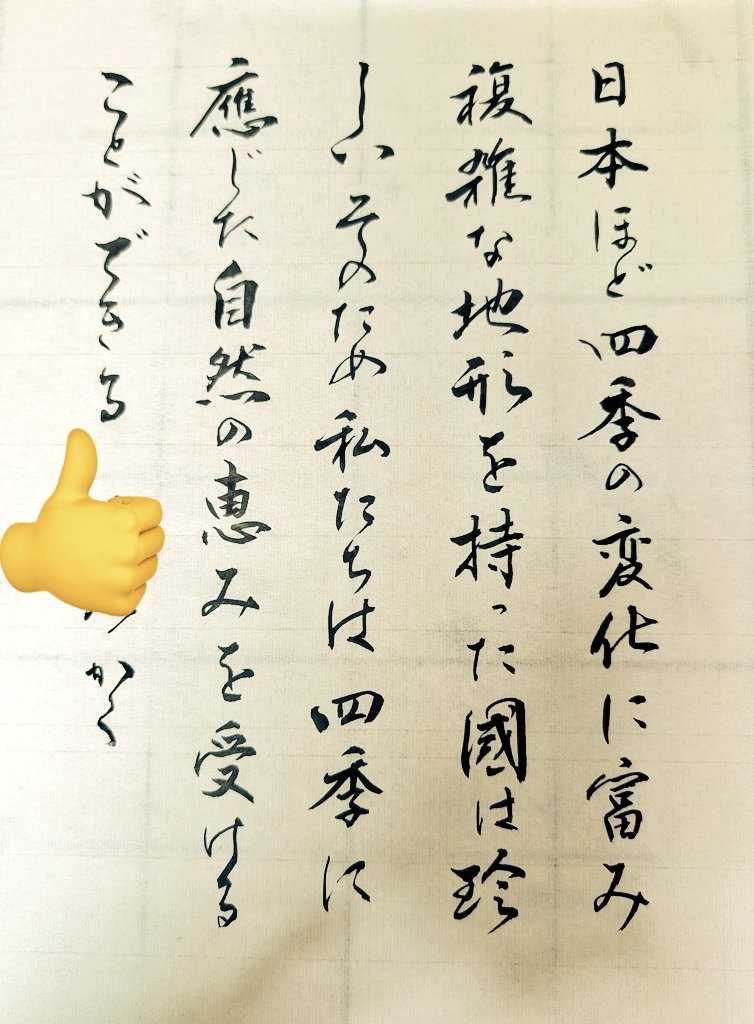 日本ほど四季の変化に富み
複雑な地形を持った國は珍
しい そのため私たちは四季に
應じた自然の恵みを受ける
ことができる
かく